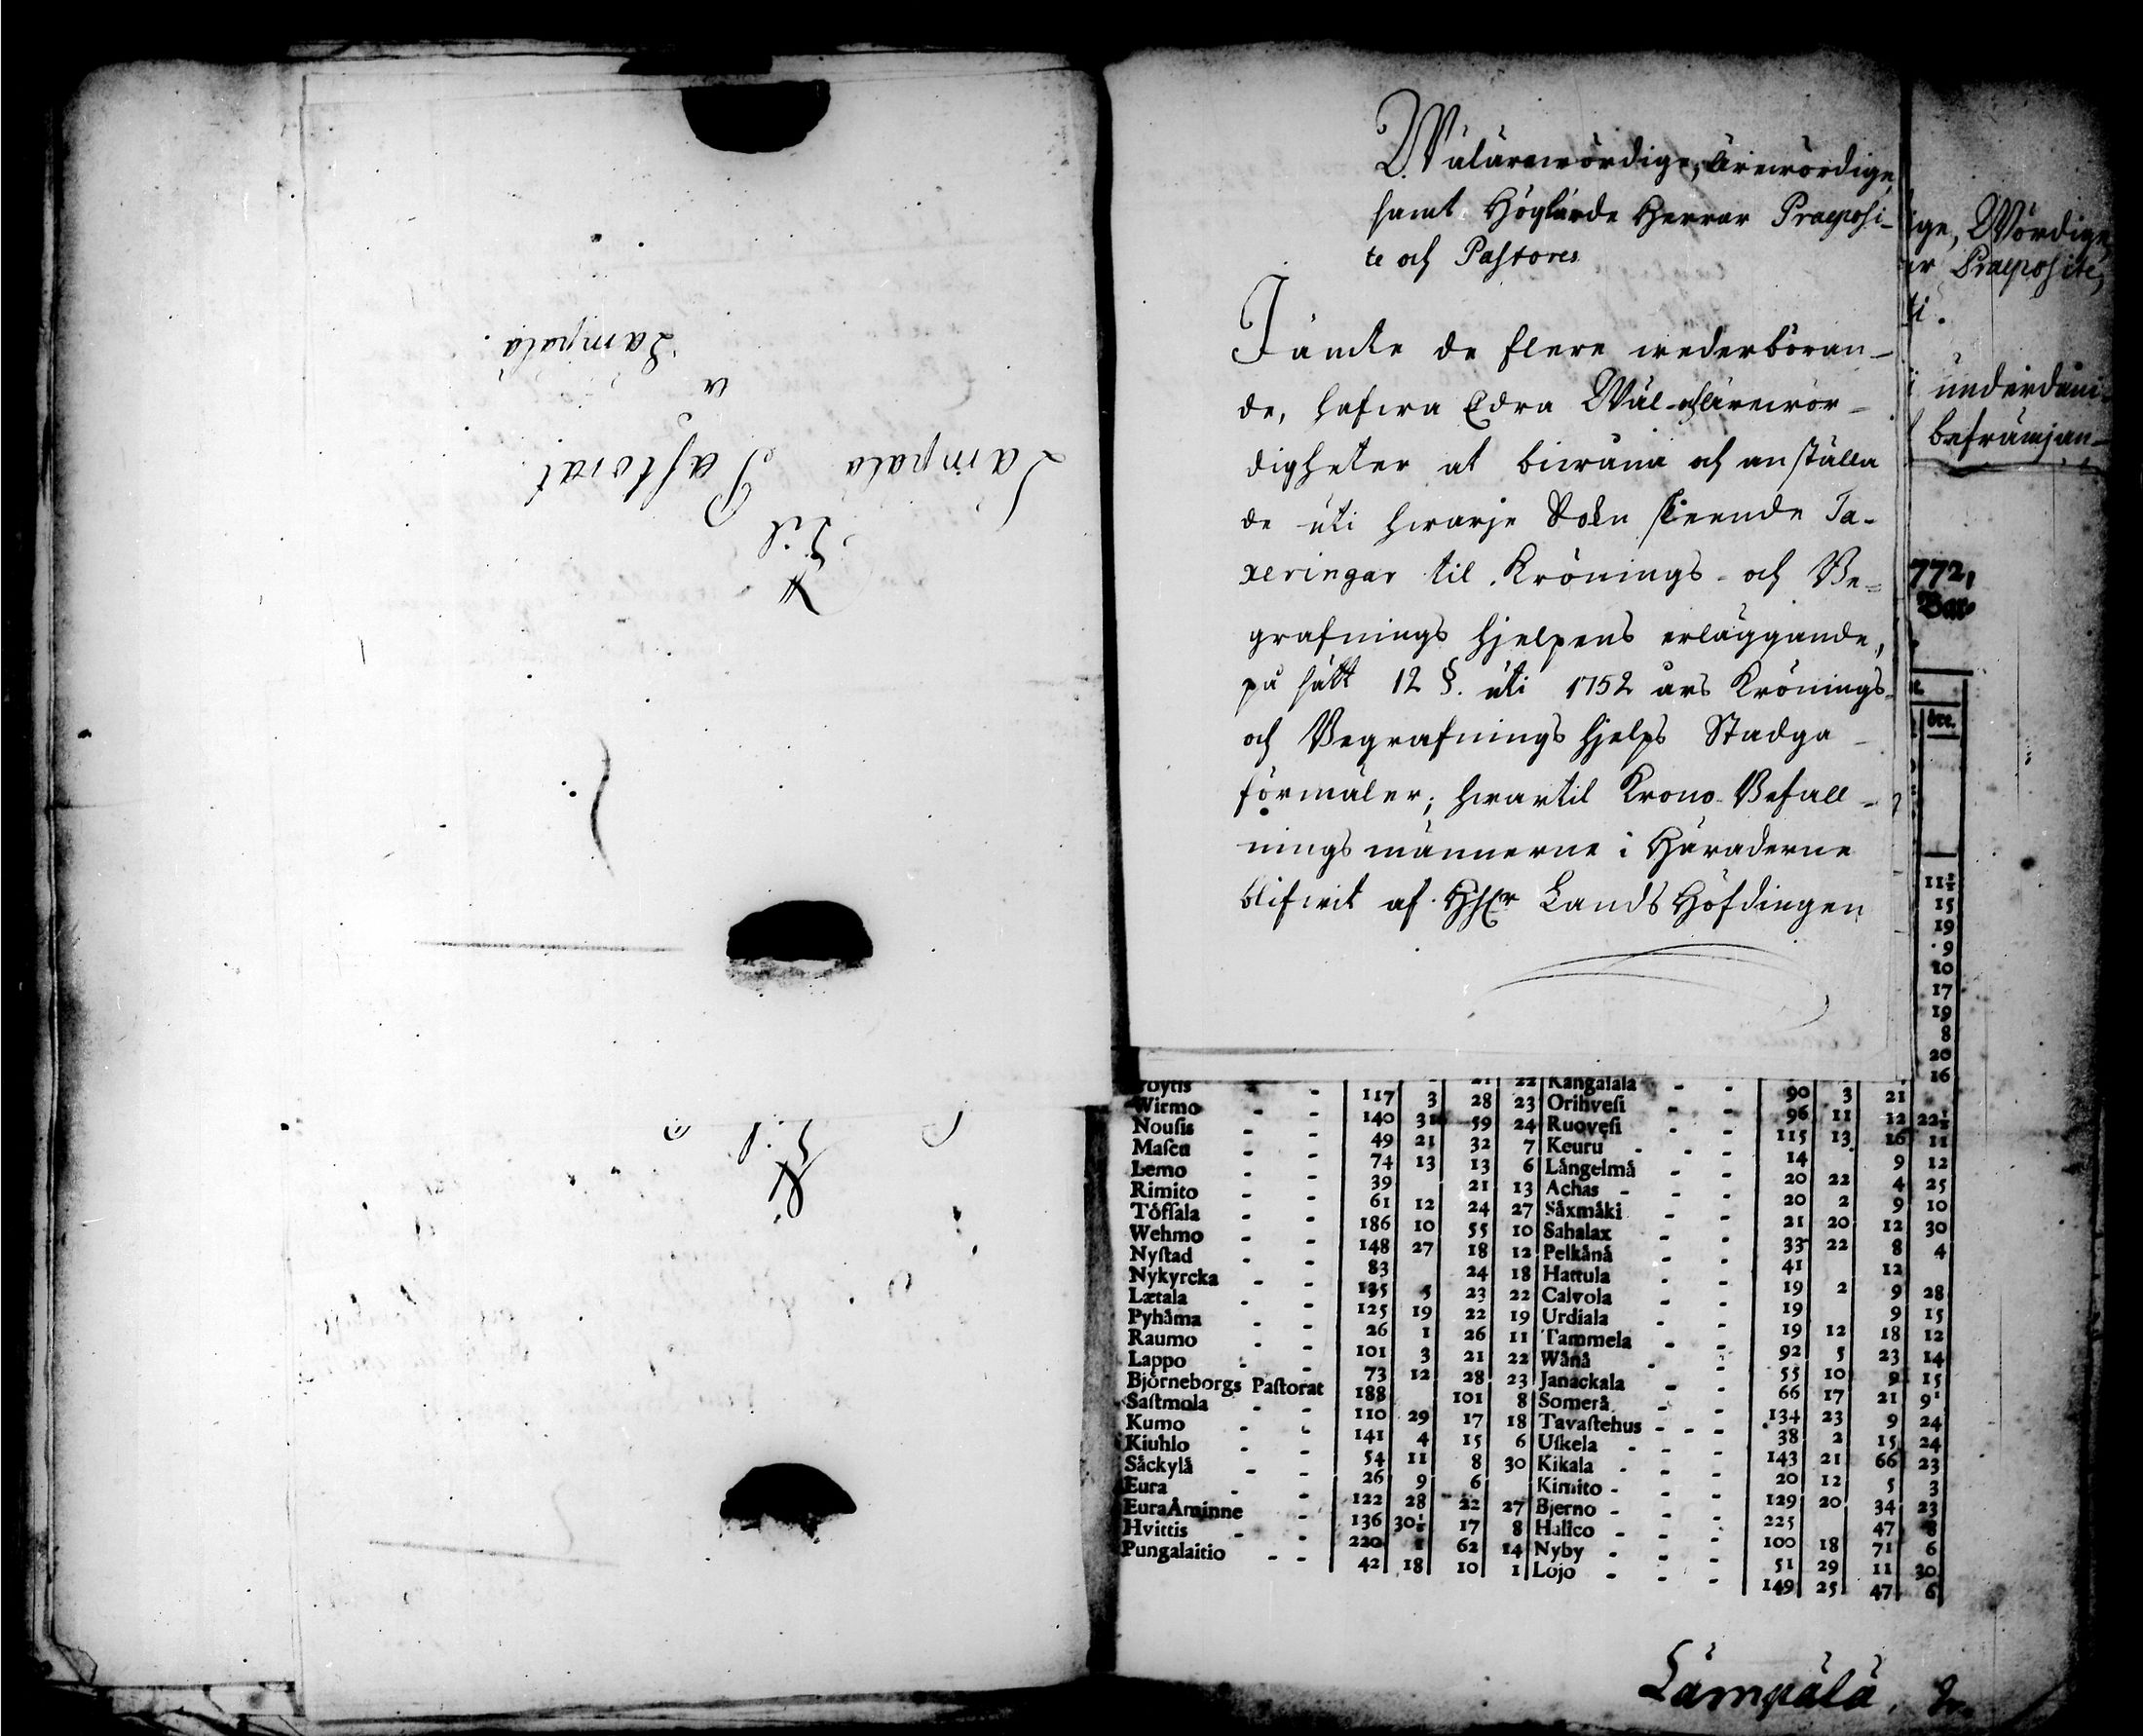 Til
Lampala Pastorat.
a
Lampala.
Til
Wälärewördige, Ärewördige,
samt Höglärde Herrar Praeposi-
te och Pastores
Jämte de flere wederböran-
de, hafwa Edra Wäl- och Ärewör-
digheter at biwåna och anställa
de uti hwarje Sokn skeende Ta-
xeringar til Krönings- och Be-
grafnings hjelpens erläggande,
på sätt 12 §. uti 1752 års Krönings-
och Begrafnings hjelps Stadga
förmäler; hwartil Krono Befall-
nings männerne i Häraderne
blifwit af HhEr Lands Höfdingen
ige, Wördige,
er Praeposite,
ti.
i underdåni-
befrämjan-
772,
öre.
11½
15
19
9
10
17
19
8
20
16
öytis - - 21 22 Kangasala - -
Wirmo - - 117 3 28 23 Orihvesi - - 90 3 21
Nousis - - 140 31 59 24 Ruovesi - - 96 11 12 22½
Mascu - - 49 21 32 7 Keuru - - - 115 13 16 11
Lemo - - 74 13 13 6 Långelmå - - 14 9 12
Rimito - - 39 21 13 Achas - - - 20 22 4 25
Töfsala - - 61 12 24 27 Såxmåki - - 20 2 9 10
Wehmo - - 186 10 55 10 Sahalax - - 21 20 12 30
Nystad - - 148 27 18 12 Pelkånå - - 33 22 8 4
Nykyrcka - - 83 24 18 Hattula - - 41 12
Lætala - - 135 5 23 22 Calvola - - 19 2 9 28
Pyhåma - - 125 19 22 19 Urdiala - - 19 9 15
Raumo - - 26 1 26 11 Tammela - - 19 12 18 12
Lappo - - 101 3 21 22 Wånå - - 92 5 23 14
Björneborgs Pastorat 73 12 28 23 Janackala - - 55 10 9 15
Sastmola - - 188 101 8 Somerå - - 66 17 21 9
Kumo - - 110 29 17 18 Tavastehus - - - 134 23 9 24
Kiuhlo - - 141 4 15 6 Uskela - - - 38 2 15 24
Såckylå - - 54 11 8 30 Kikala - - - 143 21 66 23
Eura - - 26 9 6 Kimito - - - 20 12 5 3
EuraÅminne - 122 28 22 27 Bjerno - - - 129 20 34 23
Hvittis - - 136 30½ 17 8 Halico - - - 225 47 8
Pungalaitio - - 220 1 62 14 Nyby - - - 100 18 71 6
42 18 10 1 Lojo - - - 51 29 11 30
149 25 47 6
Lämpälä.